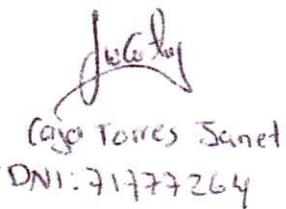 Caja Torres Janet
DNI: 71777264